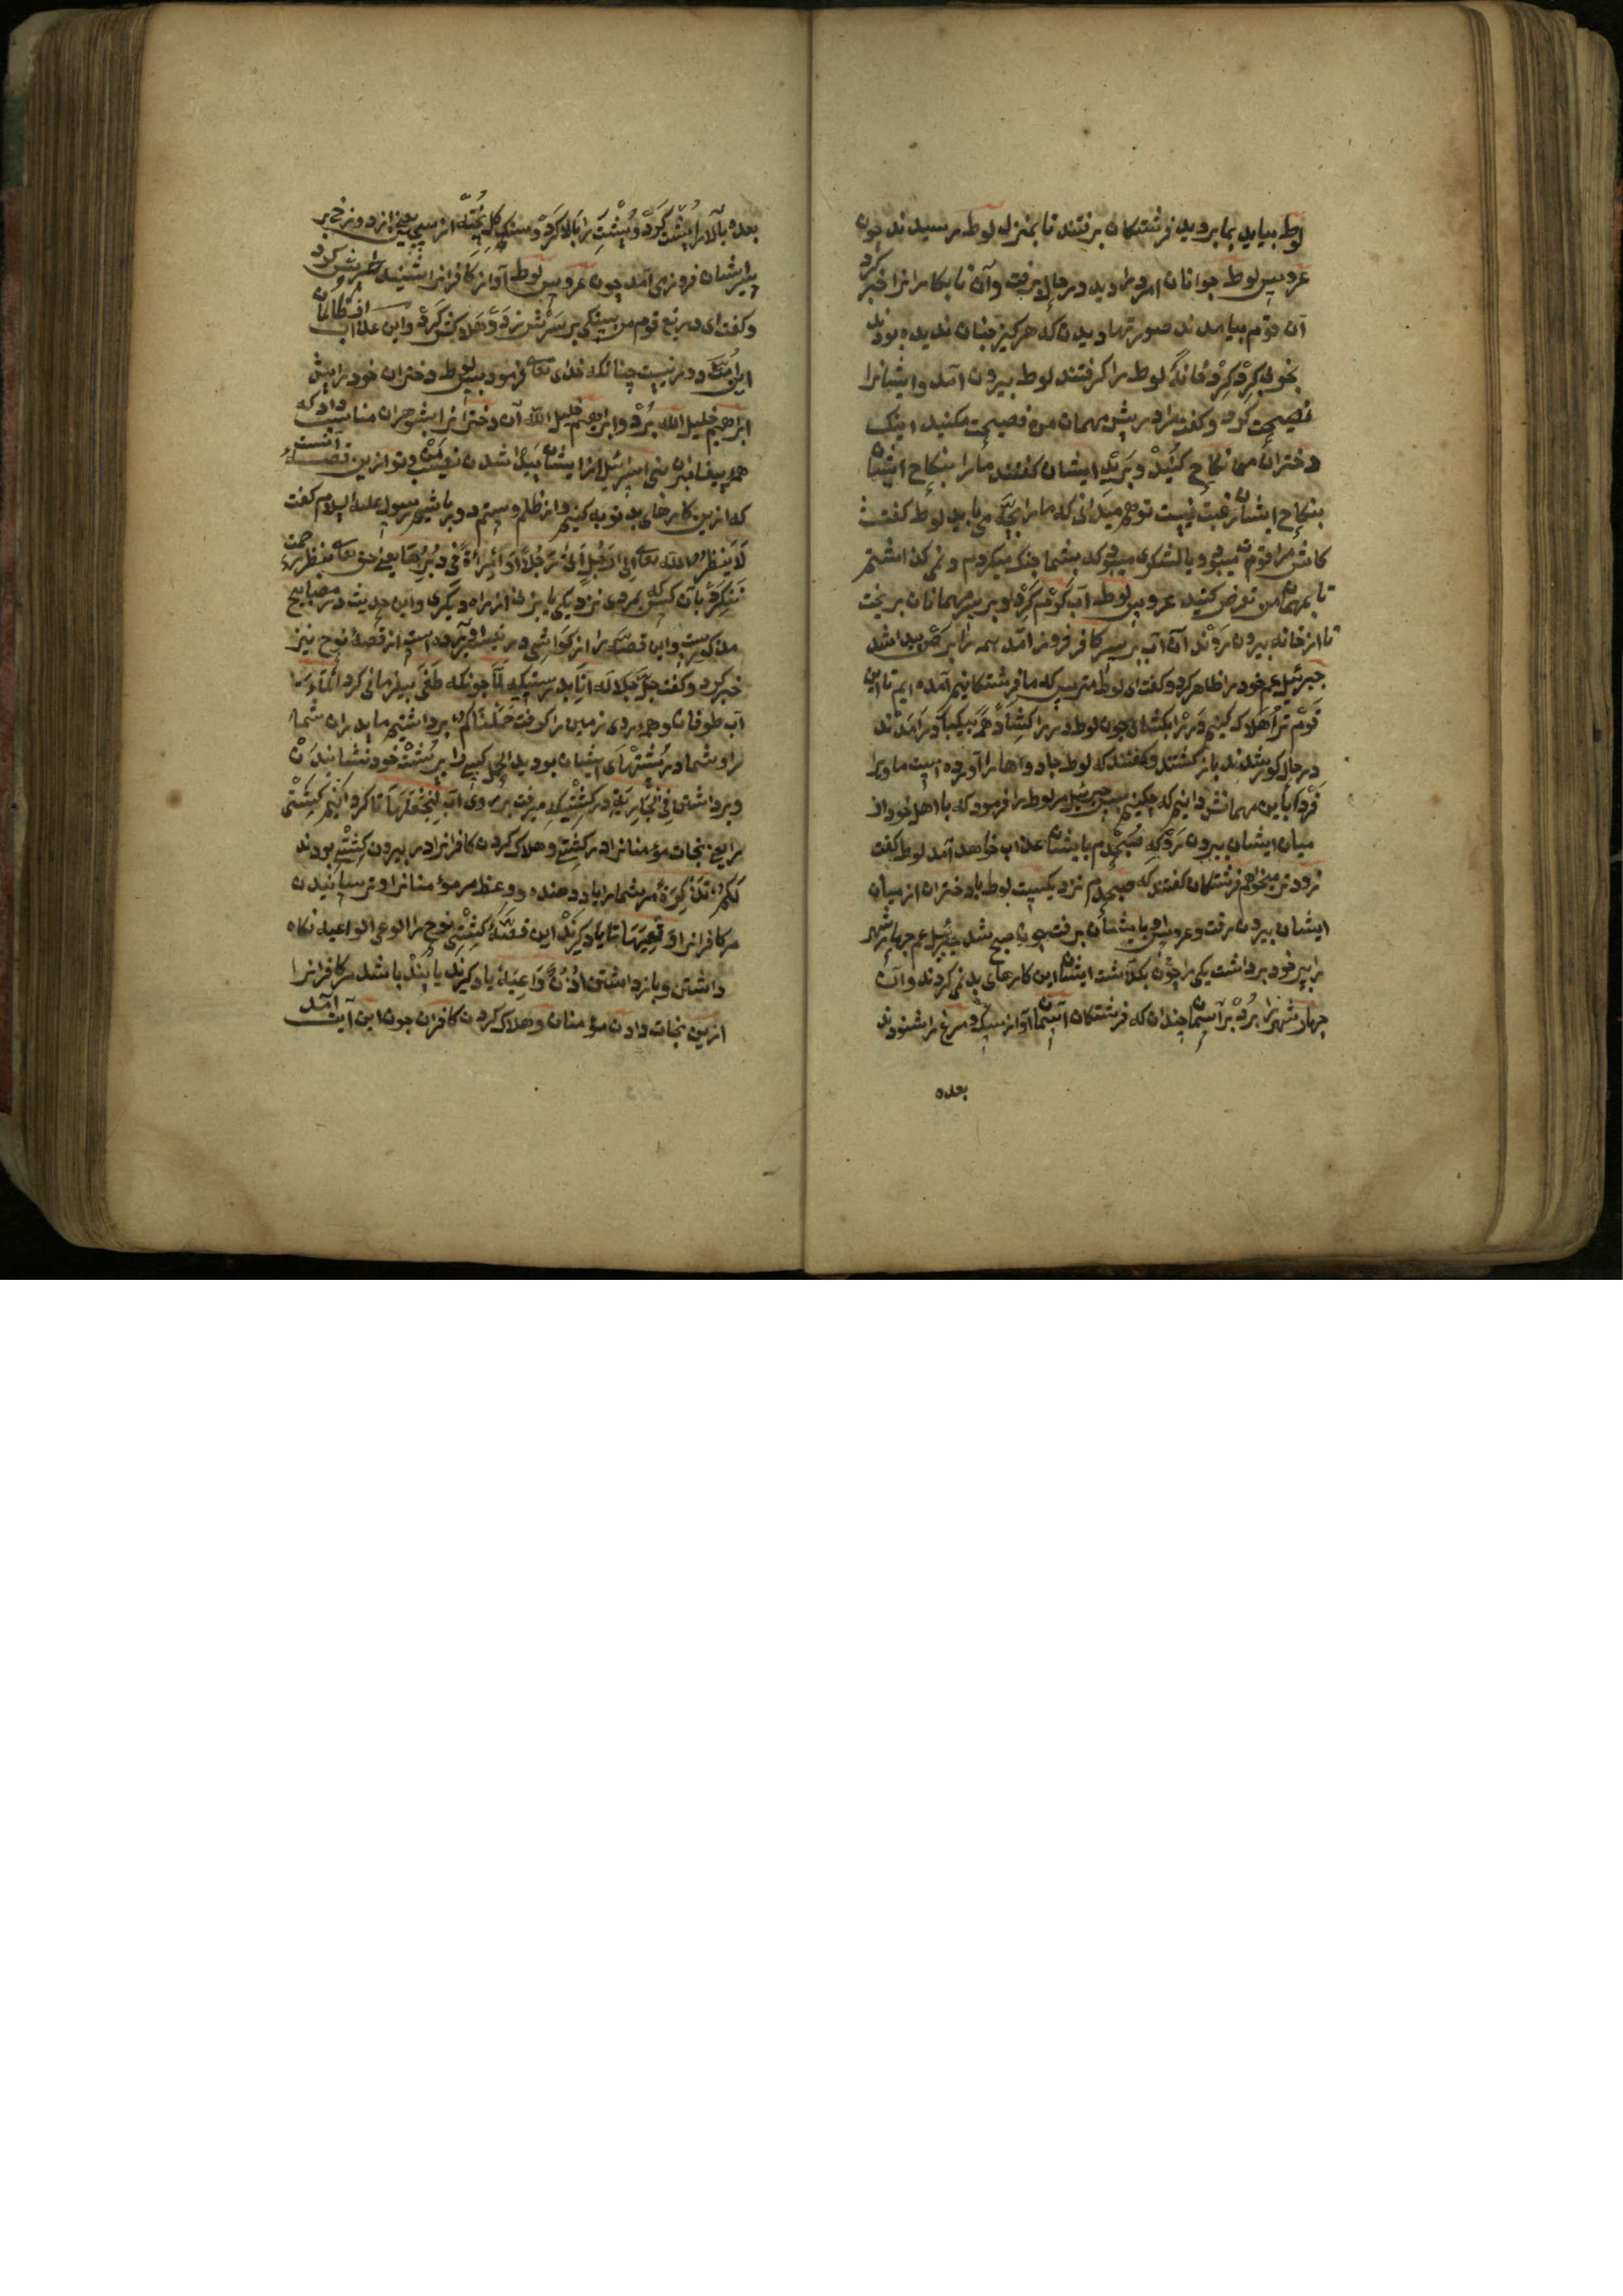 لوط بیاید بما بروید فرشتکان برفتند تا بمنزل لوط رسیدند چون
عروس لوط جوانان امرد را دید در حال برفت وآن نابکارانرا خبر کرد
آن قوم بیامدند صورتها دیدن که هرکیز چنان ندیده بودند
بخوبی کرد کرد خانهٔ لوط را کرفتند لوط بیرون آمد وایشانرا
نصیحت کرد وکفت مرا در پیش مهمان من فضیحت مکنید اینک
دختران من نکاح کنید وبرید ایشان کفتند مارا بنکاح ایشان
بنکاح ایشان رغبت نیست تو هم میدانی که مارا چه می باید لوط کفت
کاش مرا قوم میبود یا لشکری میبود که بشما جنک میکردم ونمی کذاشتم
تا بمهمان من تعرض کنید عروس لوط آب کرم کرد وبر سر مهمانان بریخت
تا از خانه بیرون روند آن آب بر سر کافر فروز آمد همه را برص پیدا شد
جبرئیل عم خود را ظاهر کرد وکفت ای لوط مترس که ما فرشتکانیم آمده ایم تا این
قوم ترا هلاک کنیم در را بکشای چون لوط در را کشاد همه بیکبار درآمدند
در حال کور شدند باز کشتند وکفتند که لوط جادوها را آورده است ما ویرا
فردا باین مهمانش دانیم که چکنیم پس جبرئیل مر لوط را فرمود که با اهل خود از
میان ایشان بیرون رو که صبحدم بایشان عذاب خواهد آمد لوط کفت
زودتر میخواهم فرشتکان کفتند که صبحدم نزدیکست لوط با دختران از میان
ایشان بیرون رفت وعروس او بایشان برفت چون صبح شد جبرئیل عم چهار شهر
را بپر خود برداشت یکی را چون بکذاشت ایشان این کارهای بد نمی کردند وآن
چهار شهر را برد بر آسمان چندان که فرشتکان آسمان آواز سک و مرغ را شنودند
بعده
بعده بالا را پشت کرد وپشت را بالا کرد وسنک کل پخته از سجین یعنی از دوزخ بر
سر ایشان فرود می آمد چون عروس لوط آواز کافرانرا شنید
وکفت ای دریغ قوم من سنکی بر سرش زد وهلاکش کرد واین عذاب از ظالمان
این امت دور نیست چنانکه خدای تعالی فرمود پس لوط دختران خود را پیش
ابراهیم خلیل الله برد وابراهیم خلیل الله آن دخترانرا بشوهران مناسب داد که
همه پیغامبران بنی اسرائیل از ایشان پیدا شدن نصیب من وتو ازین قصه آنست
که ازین کارهای بد توبه کنیم واز ظلم وستم دور باشیم رسول علیه السلام کفت
لا ینظر الله تعالی الی الرجل اتی رجلا او امراة فی دبرها یعنی حق تعالی بنظر رحمت
ننکرد بآن کس که بمردی نزدیکی یا بزن از راه دیکری واین حدیث در مصابیح
مذکورست واین قصه را از کواشی در تفسیر آورده است از قصهٔ نوح نیز
خبر کرد وکفت جل جلاله انا بدرستیکه لما چونکه طغی بیفرمانی کرد الماء
آب طوفان وهمه روی زمین را کرفت حملناکم برداشتیم ما پدران شما
را وشما در پشتهای ایشان بودید الحمل کسی را بر پشت خود نشانیدن
وبرداشتن فی الجاریة در کشتیکه میرفت بر روی آب لنجعلها تا کردانیم کشتی
را یعنی نجات مؤمنانرا در کشتی وهلاک کردن کافرانرا در بیرون کشتی بودند
لکم تذکرة مر شمارا یاد دهنده ووعظ مر مؤمنانرا وترسانیدن
مر کافرانرا وتعیها تا یاد کیرند این قصهٔ کشتی نوح را الوعی الواعیه نکاه
داشتن وباز داشتن اذن واعیة یاد کیرند یا پند باشد مر کافرانرا
ازین نجات دادن مؤمنان وهلاک کردن کافران چون این آیت آمد